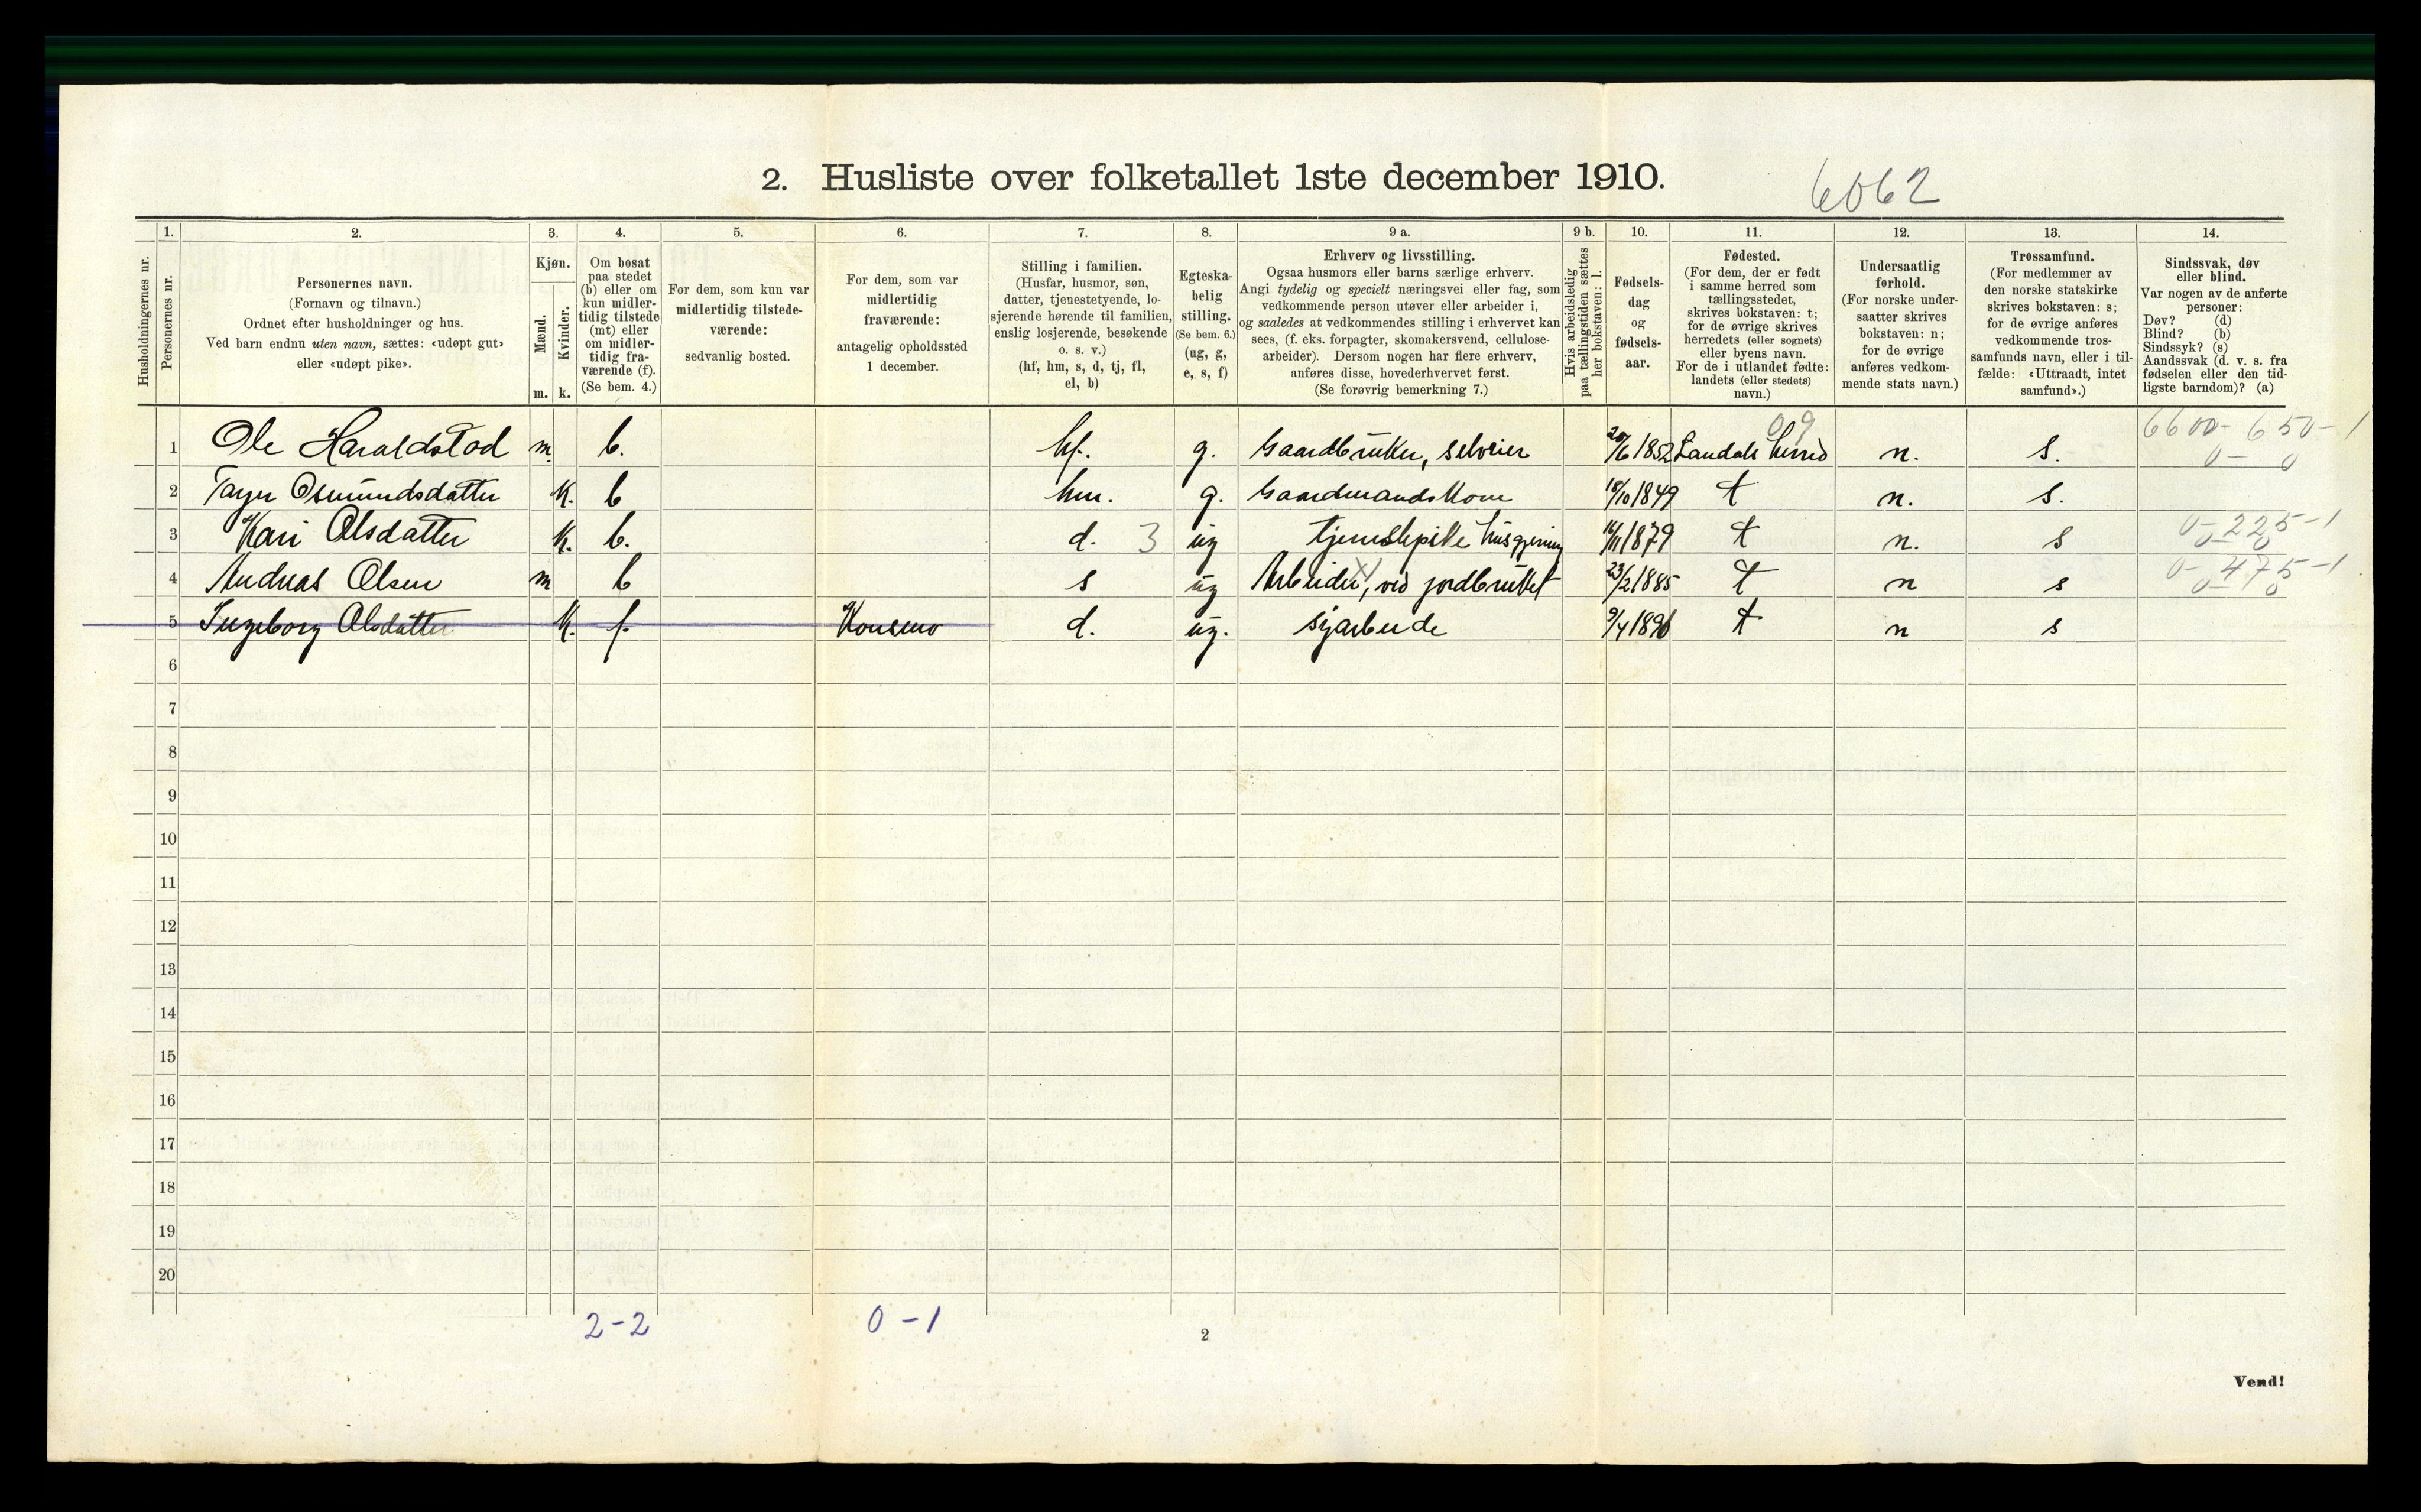 2. Husliste over folketallet 1ste december 1910.
6062
1. 2. 3. 4. 5. 6. 7. 8. 9 a. 9 b. 10. 11. 12. 13. 14.
Husholdningernes nr.
Personernes nr.
Personernes navn.
(Fornavn og tilnavn.)
Ordnet efter husholdninger og hus.
Ved barn endnu uten navn, sættes: «udøpt gut»
eller «udøpt pike».
Kjøn.
Mænd.
Kvinder.
m. k.
Om bosat
paa stedet
(b) eller om
kun midler-
tidig tilstede
(mt) eller
om midler-
tidig fra-
værende (f).
(Se bem. 4.)
For dem, som kun var
midlertidig tilstede-
værende:
sedvanlig bosted.
For dem, som var
midlertidig
fraværende:
antagelig opholdssted
1 december.
Stilling i familien.
(Husfar, husmor, søn,
datter, tjenestetyende, lo-
sjerende hørende til familien,
enslig losjerende, besøkende
o. s. v.)
(hf, hm, s, d, tj, fl,
el, b)
Egteska-
belig
stilling.
(Se bem. 6.)
(ug, g,
e, s, f)
Erhverv og livsstilling.
Ogsaa husmors eller barns særlige erhverv.
Angi tydelig og specielt næringsvei eller fag, som
vedkommende person utøver eller arbeider i,
og saaledes at vedkommendes stilling i erhvervet kan
sees, (f. eks. forpagter, skomakersvend, cellulose-
arbeider). Dersom nogen har flere erhverv,
anføres disse, hovederhvervet først.
(Se forøvrig bemerkning 7.)
Hvis arbeidsledig
paa tællingstiden sættes
her bokstaven: l.
Fødsels-
dag
og
fødsels-
aar.
Fødested.
(For dem, der er født
i samme herred som
tællingsstedet,
skrives bokstaven: t;
for de øvrige skrives
herredets (eller sognets)
eller byens navn.
For de i utlandet fødte:
landets (eller stedets)
navn.)
Undersaatlig
forhold.
(For norske under-
saatter skrives
bokstaven: n;
for de øvrige
anføres vedkom-
mende stats navn.)
Trossamfund.
(For medlemmer av
den norske statskirke
skrives bokstaven: s;
for de øvrige anføres
vedkommende tros-
samfunds navn, eller i til-
fælde: «Uttraadt, intet
samfund».)
Sindssvak, døv
eller blind.
Var nogen av de anførte
personer:
Døv? (d)
Blind? (b)
Sindssyk? (s)
Aandssvak (d. v. s. fra
fødselen eller den tid-
ligste barndom)? (a)
09
6600-650-1
0- 0
1 Ole Haraldstad m. b. hf. g. Gaardbruker, selveier 20/6 1852 Laudals herred n. s.
2 Tayn Osmundsdatter k. b hm. g. Gaardmandskone 18/10 1849 t n. s.
0-225-1
0- 0
3 Kari Olsdatter k. b. d. 3 ug tjenestepike husgjerning 16/11 1879 t n. s
0-475-1
0- 0
4 Andreas Olsen m b s ug Arbeider, ved jordbruket 23/2 1885 t n s
5 Ingeborg Olsdatter k. f. Konsmo d. ug. syarbeide 9/4 1896 t n s
6
7
8
9
10
11
12
13
14
15
16
17
18
19
20
2-2 0-1
2
Vend!